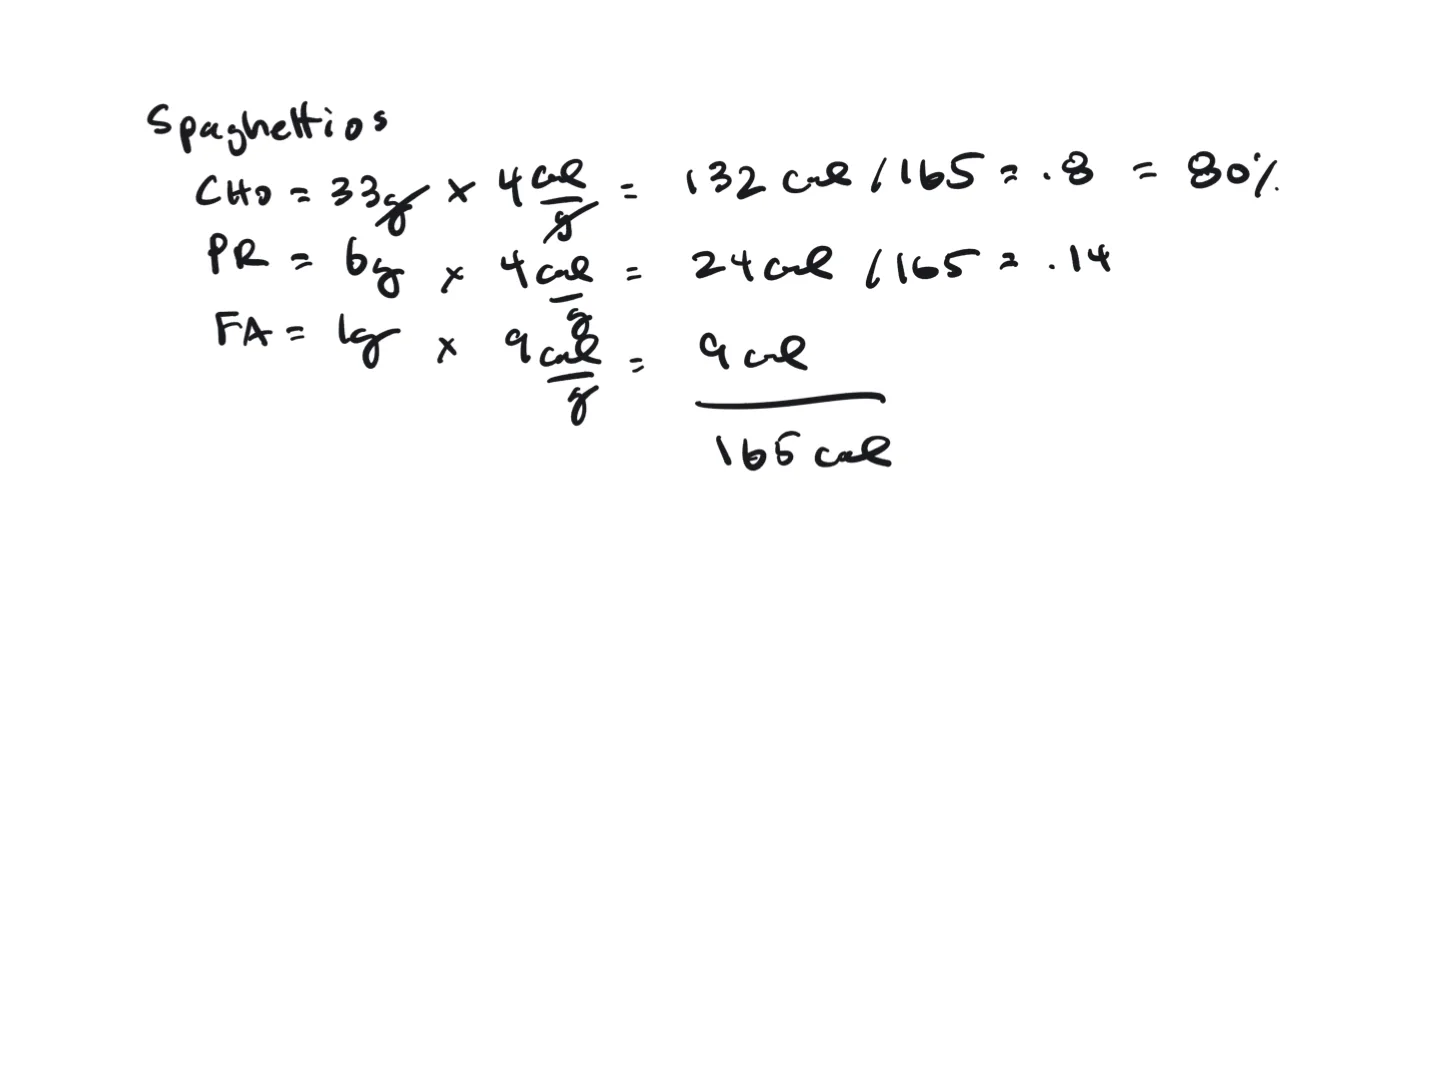 Spaghettios
CHO = 33g x 4 cal/g = 132 cal / 165 = .8 = 80%
PR = 6g x 4 cal/g = 24 cal / 165 = .14
FA = 1g x 9 cal/g = 9 cal
165 cal